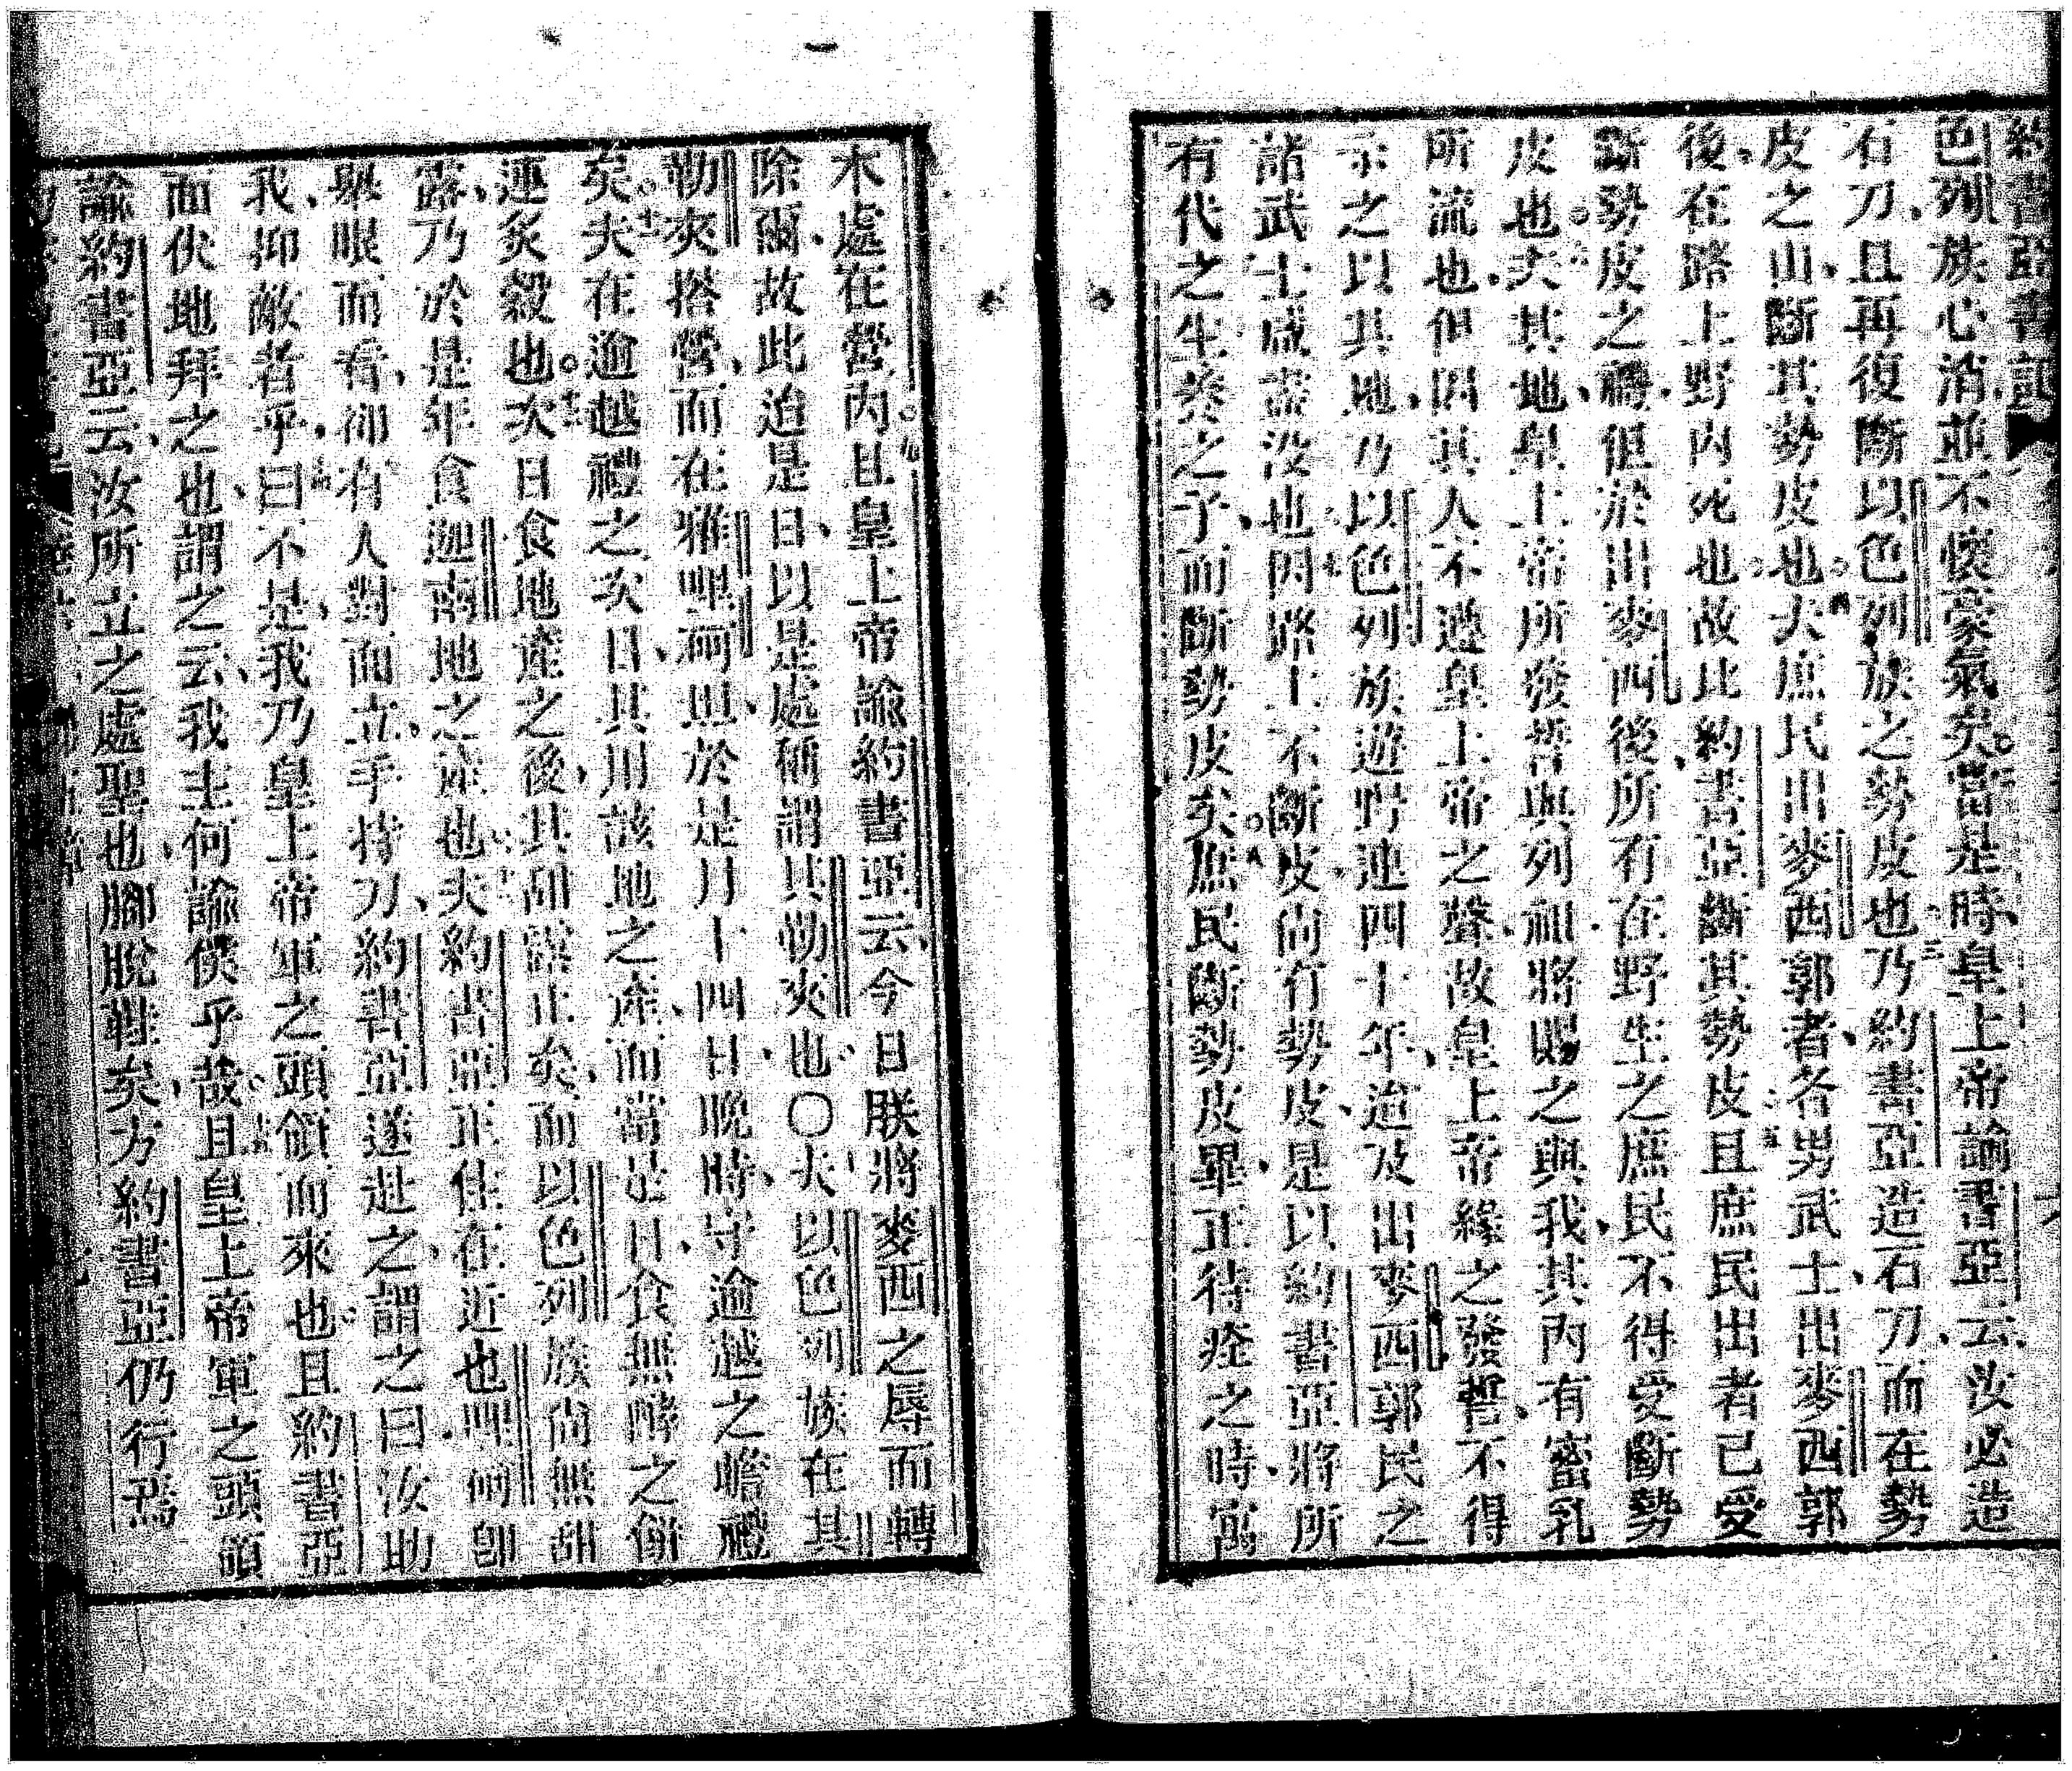 約書亞書記
色列族心消並不懷豪氣矣。二當是時、皇上帝諭書亞云、汝必造
石刀、且再復斷以色列族之勢皮也。三乃約書亞造石刀、而在勢
皮之山、斷其勢皮也。四夫庶民出麥西郭者、各男武士出麥西郭
後、在路上野內死也。故此約書亞斷其勢皮。五且庶民出者已受
斷勢皮之禮、但於出麥西後、所有在野生之庶民不得受斷勢
皮也。夫其地皇上帝所發誓與列祖、將賜之與我、其內有蜜乳
所流也、但因其人不遵皇上帝之聲、故皇上帝緣之發誓、不得
示之以其地、乃以色列族遊野連四十年、迨及出麥西郭民之
諸武士咸盡沒也。七因路上不斷皮、尚有勢皮、是以約書亞將所
有代之生養之子、而斷勢皮矣。八庶民斷勢皮畢、正待痊之時、寓
木處在營內。九且皇上帝諭約書亞云、今日朕將麥西之辱而轉
除爾、故此迨是日、以是處稱謂其勒夾也。○夫以色列族在其
勒夾搭營、而在雅哩荷坦、於是月十四日晚時、守逾越之瞻禮
矣。十一夫在逾越禮之次日、其用該地之產、而當是日、食無酵之餅
連炙穀也。十二次日食地產之後、其甜露止矣、而以色列族尚無甜
露、乃於是年食迦南地之產也。夫約書亞正住在近也哩荷、卽
舉眼而看、卻有人對面立、手持刀、約書亞遂赴之、謂之曰、汝助
我、抑敵者乎。十四曰、不是、我乃皇上帝軍之頭領而來也。且約書亞
面伏地拜之也、謂之云、我主何諭僕乎哉。十五且皇上帝軍之頭領
諭約書亞云、汝所立之處聖也、腳脫鞋矣、方約書亞仍行焉